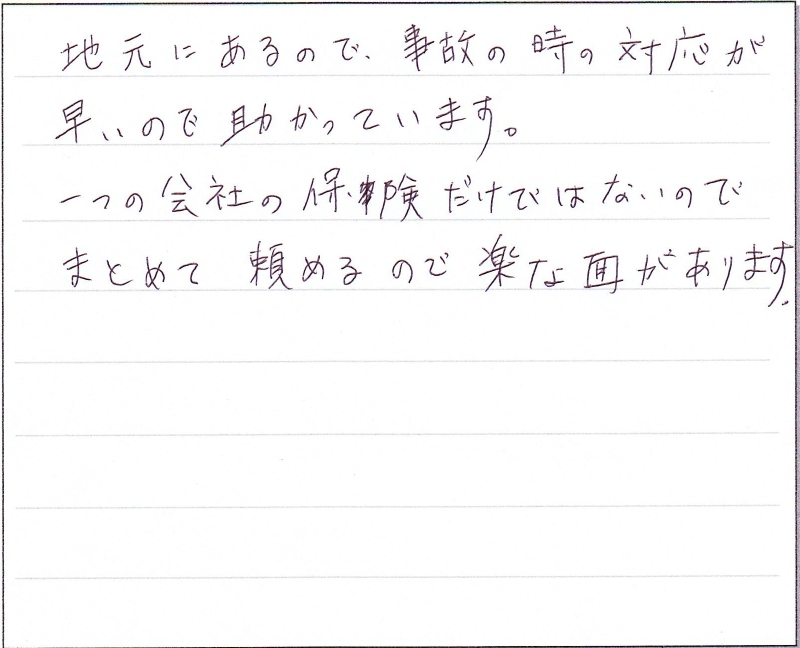 地元にあるので、事故の時の対応が
早いので助かっています。
一つの会社の保険だけではないので
まとめて頼めるので楽な面があります.